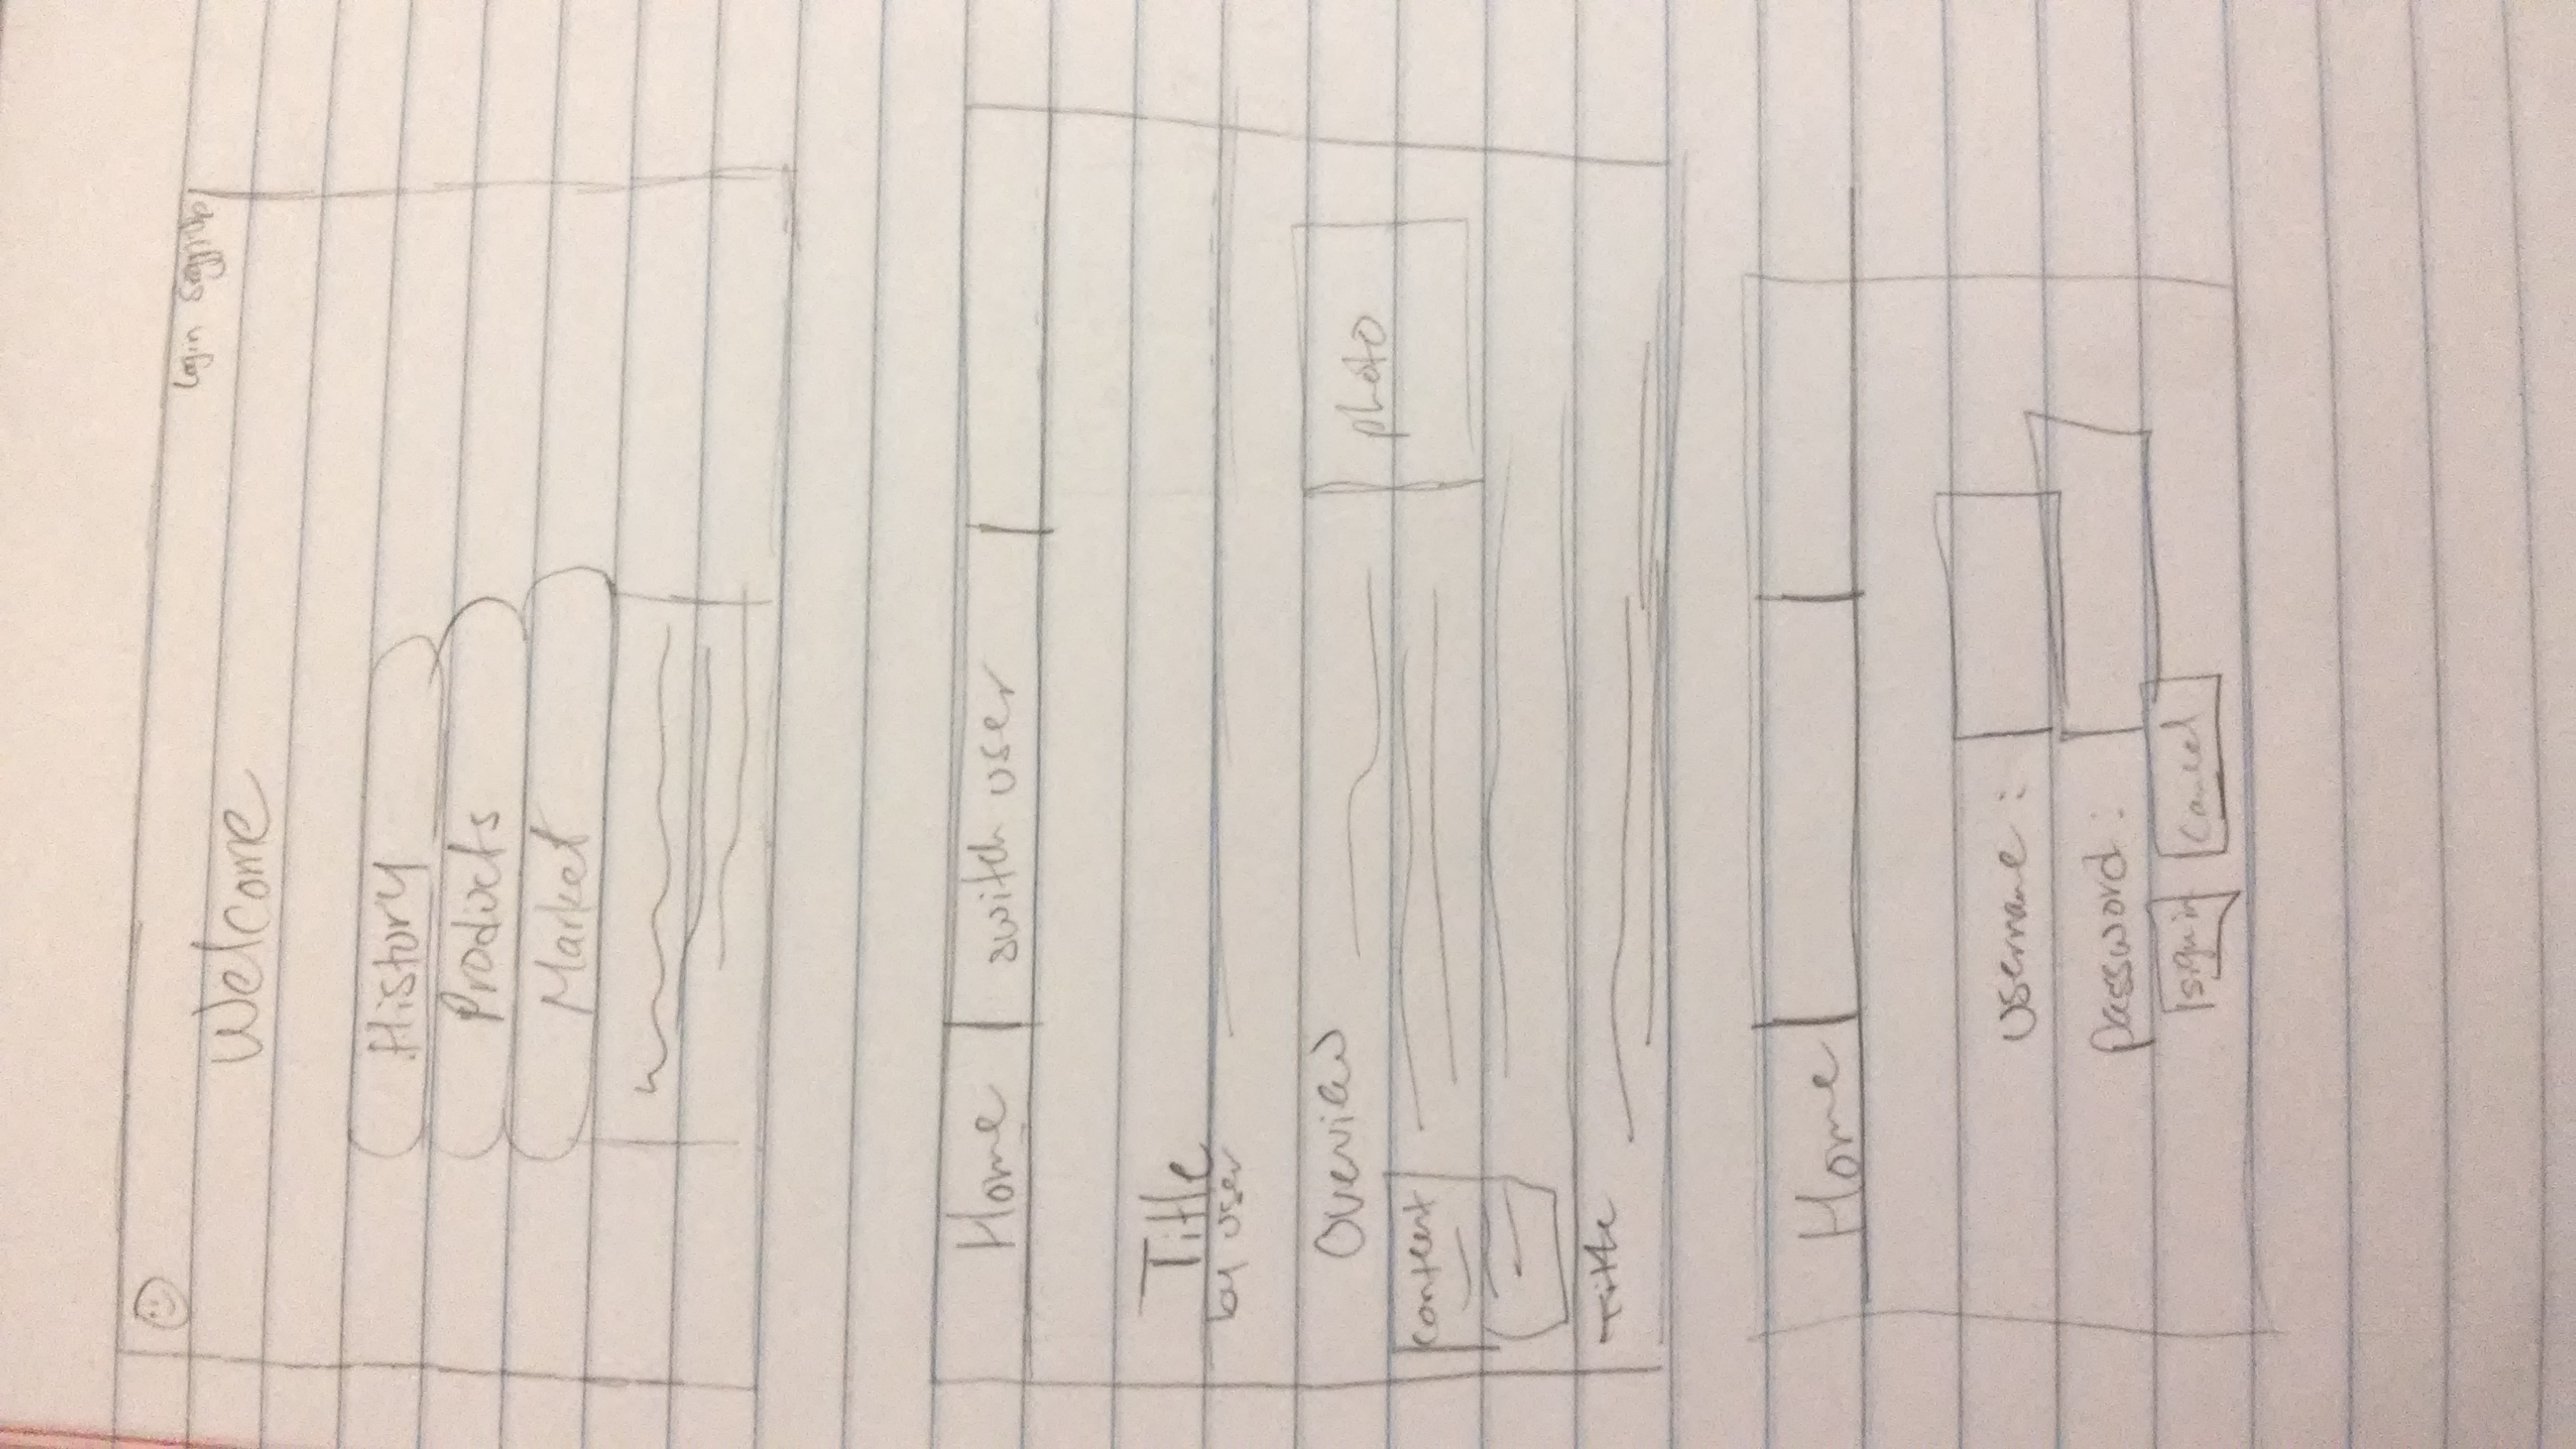 Login SignUp
Welcome
History
Products
Market
Home switch user
Title
by user
Overview
photo
content
Title
Home
username :
password :
sign in cancel